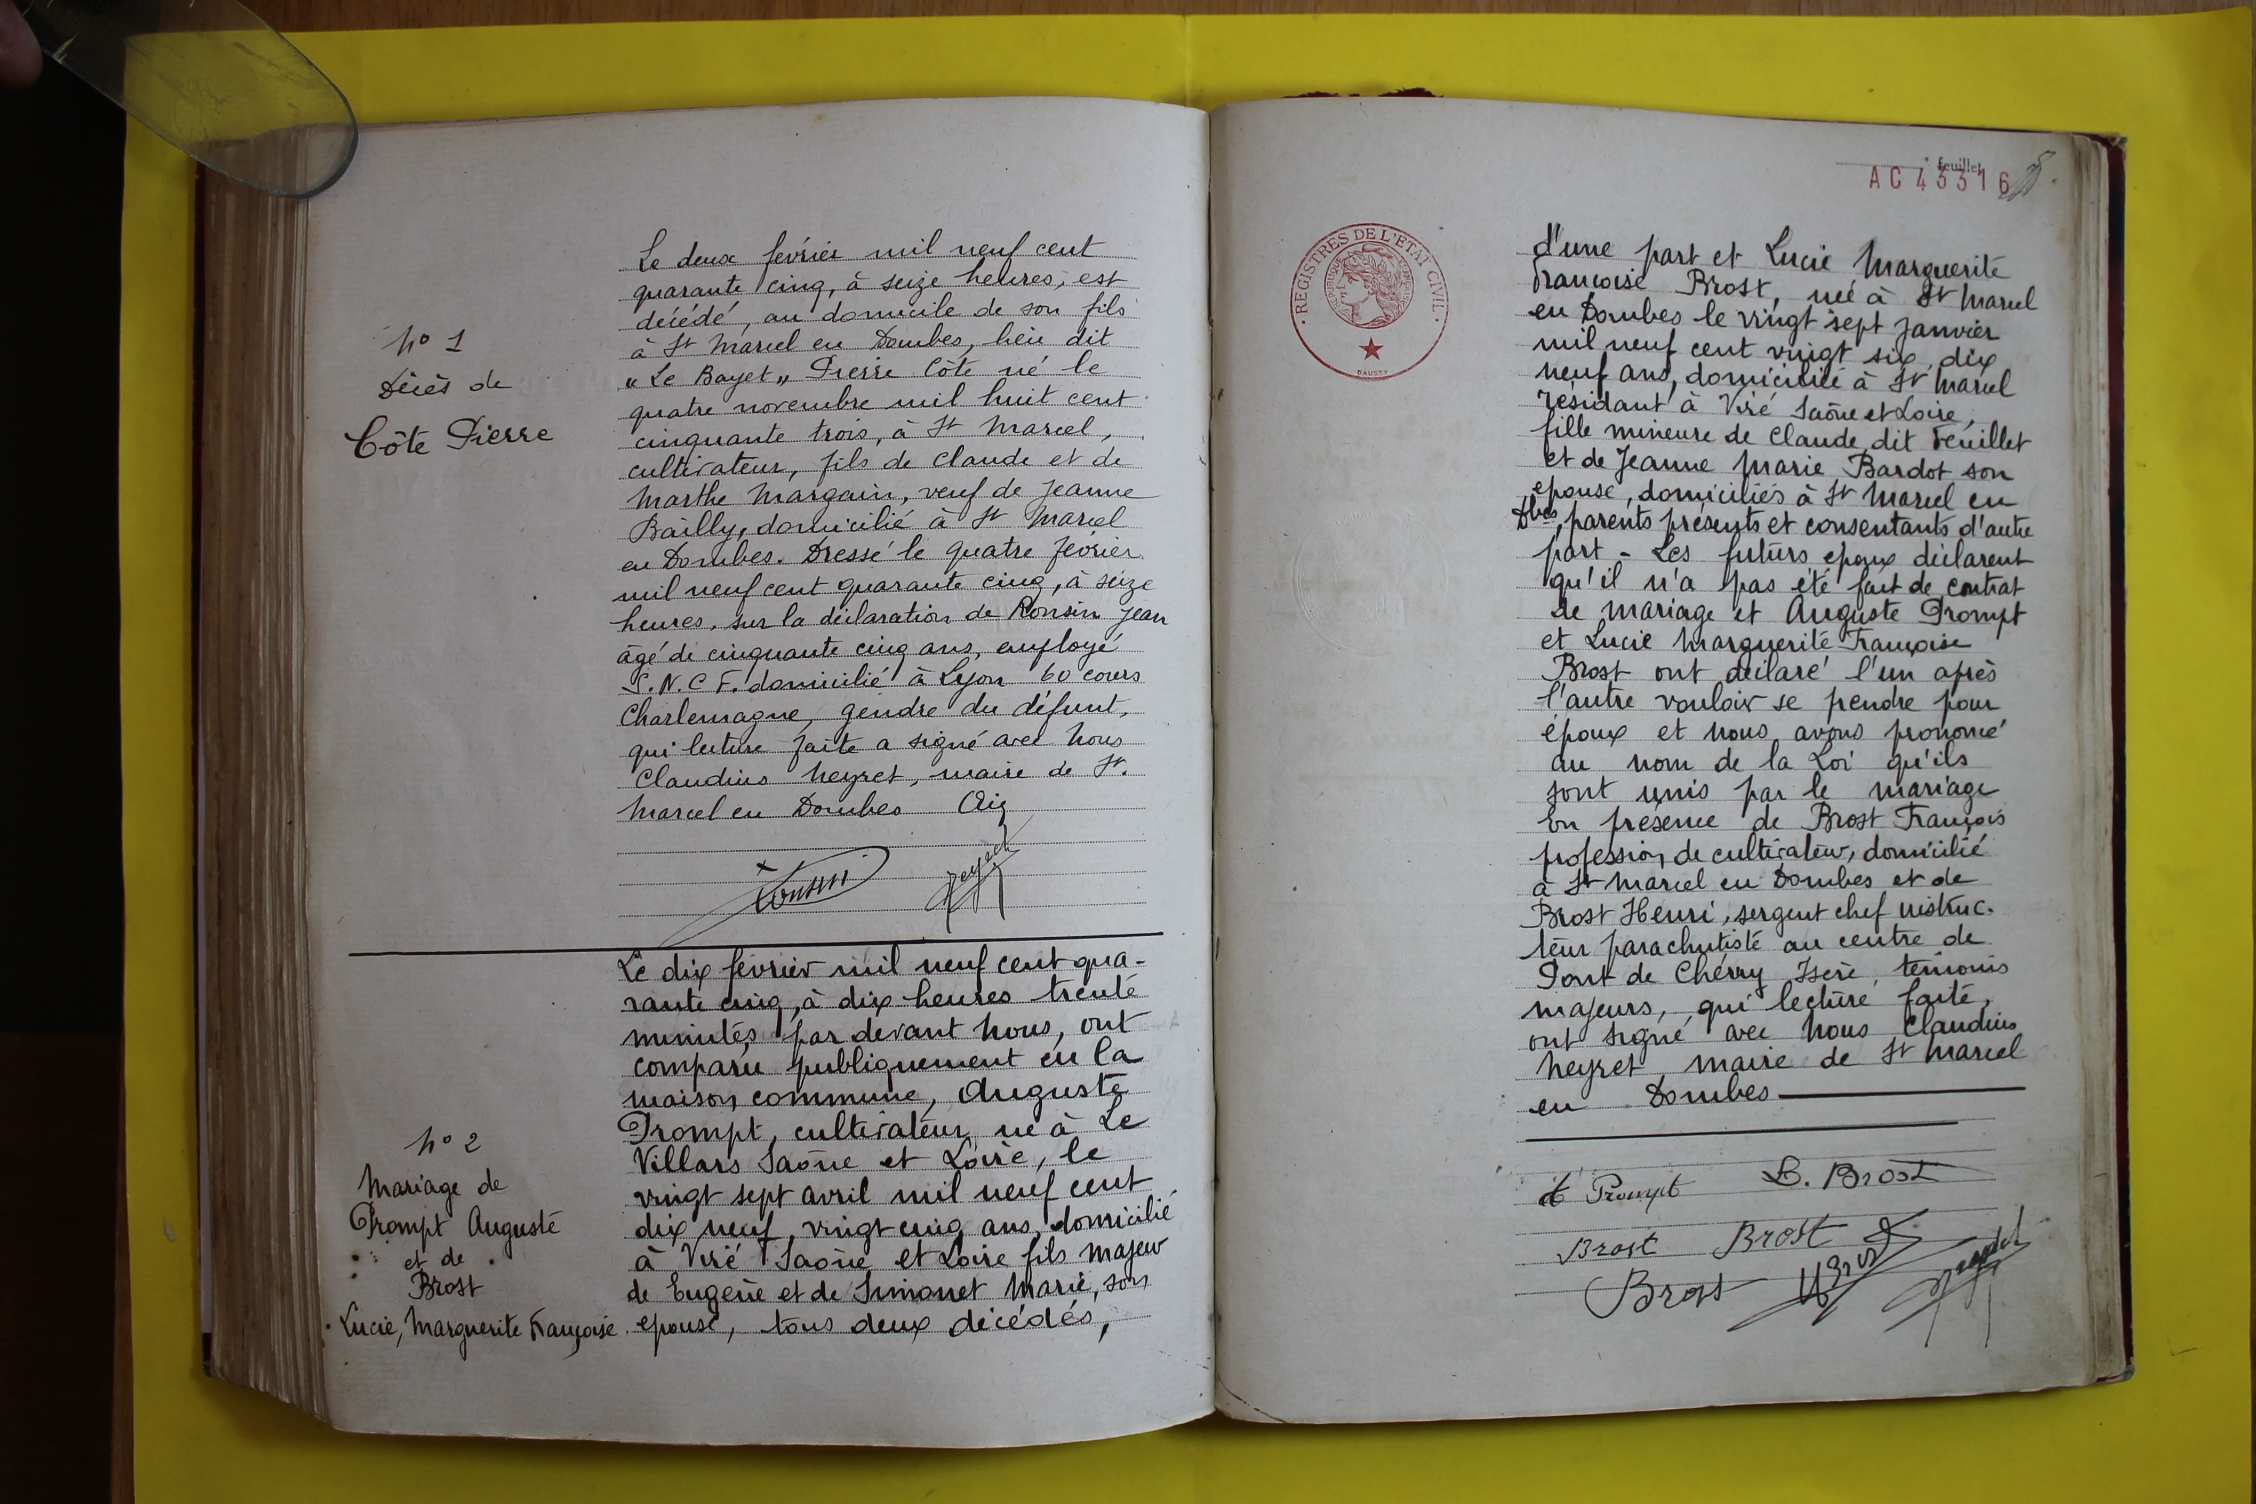 N° 1
Décès de
Côte Pierre
Le deux février mil neuf cent
quarante cinq, à seize heures, est
décédé, au domicile de son fils
à St Marcel en Dombes, lieu dit
"Le Bayet" Pierre Côte né le
quatre novembre mil huit cent
cinquante trois, à St Marcel,
cultivateur, fils de Claude et de
Marthe Margain, veuf de Jeanne
Bailly, domicilié à St Marcel
en Dombes. Dressé le quatre février
mil neuf cent quarante cinq, à seize
heures, sur la déclaration de Ronsin Jean
âgé de cinquante cinq ans, employé
S.N.C.F. domicilié à Lyon 60 cours
Charlemagne, gendre du défunt,
qui lecture faite a signé avec Nous
Claudius Neyret, maire de St.
Marcel en Dombes Ain
N° 2
Mariage de
Prompt Auguste
et de
Brost
Lucie, Marguerite Françoise
Le dix février mil neuf cent qua-
rante cinq, à dix heures trente
minutes par devant Nous, ont
comparu publiquement en la
maison commune, Auguste
Prompt, cultivateur né à Le
Villars Saône et Loire, le
vingt sept avril mil neuf cent
dix neuf, vingt cinq ans, domicilié
à Viré Saône et Loire fils majeur
de Eugène et de Simonet Marie, son
epouse, tous deux décédés,
feuillet
AC 43316
REGISTRES DE L'ETAT CIVIL
DAUSSY
d'une part et Lucie Marguerite
Françoise Brost, née à St Marcel
en Dombes le vingt sept janvier
mil neuf cent vingt six, dix
neuf ans, domiciliée à St Marcel
résidant à Viré Saône et Loire,
fille mineure de Claude dit Feuillet
et de Jeanne Marie Bardot son
epouse, domiciliés à St Marcel en
Dbes, parents présents et consentants d'autre
part - Les futurs epoux déclarent
qu'il n'a pas été fait de contrat
de mariage et Auguste Prompt
et Lucie Marguerite Françoise
Brost ont déclaré l'un après
l'autre vouloir se prendre pour
époux et nous avons prononcé
au nom de la Loi qu'ils
sont unis par le mariage
En présence de Brost François
profession de cultivateur, domicilié
à St Marcel en Dombes et de
Brost Henri, sergent chef instruc-
teur parachutiste au centre de
Pont de Chéruy Isère, témoins
majeurs, qui lecture faite,
ont signé avec Nous Claudius
Neyret, maire de St Marcel
en Dombes
Prompt L. Brost
Brost Brost
Brost H Brost Neyret